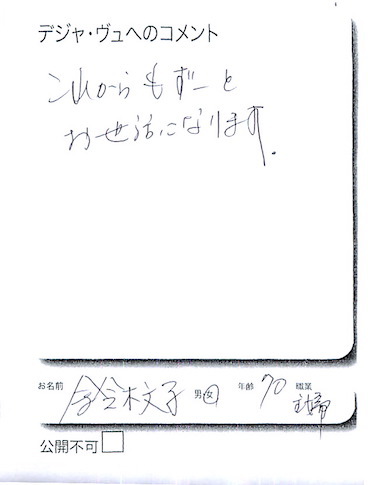 デジャ・ヴュへのコメント
これからもずーと
おせ話になります.
お名前 鈴木文子 男 女 年齢 70 職業 主婦
公開不可